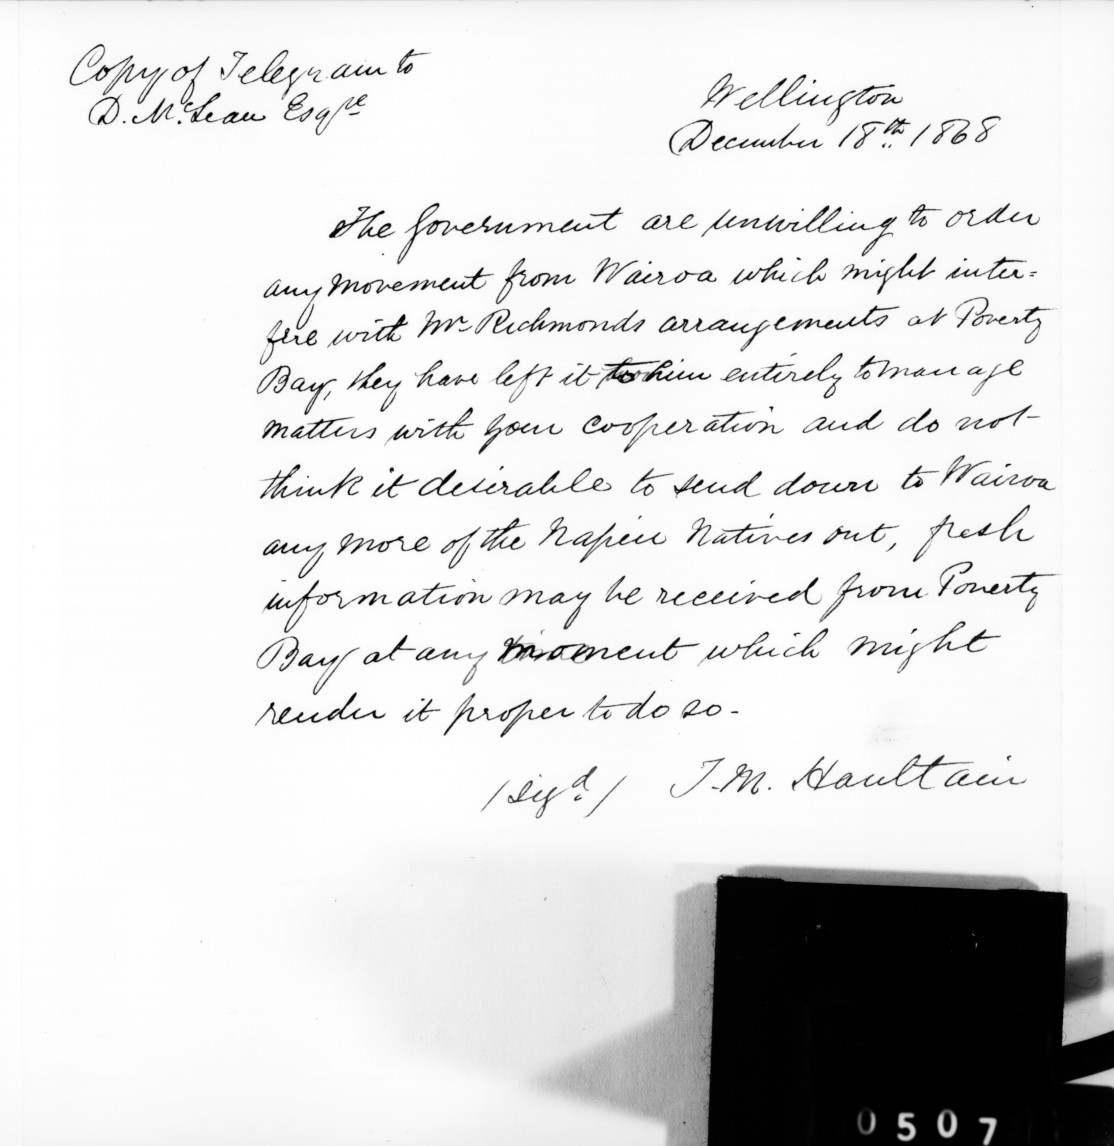 Copy of Telegram to
D. McLean Esqre
Wellington
December 18th 1868
The Government are unwilling to order
any movement from Wairoa which might inter=
fere with Mr Richmonds arrangements at Poverty
Bay, they have left it to him entirely to manage
matters with your cooperation and do not
think it desirable to send down to Wairoa
any more of the Napier Natives out, fresh
information may be received from Poverty
Bay at any moment which might
render it proper to do so -
/Sigd/ T.M. Haultain
0507